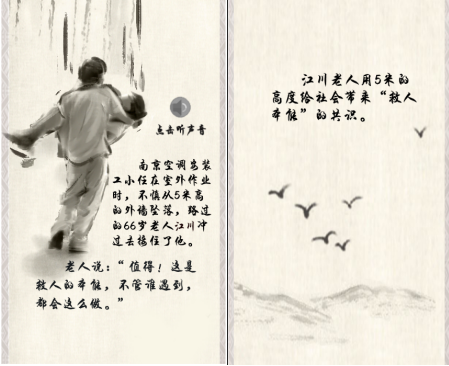 点击听声音
南京空调安装
工小任在室外作业
时，不慎从5米高
的外墙坠落，路过
的66岁老人江川冲
过去接住了他。
老人说：“值得！这是
救人的本能，不管谁遇到，
都会这么做。”
江川老人用5米的
高度给社会带来“救人
本能”的共识。